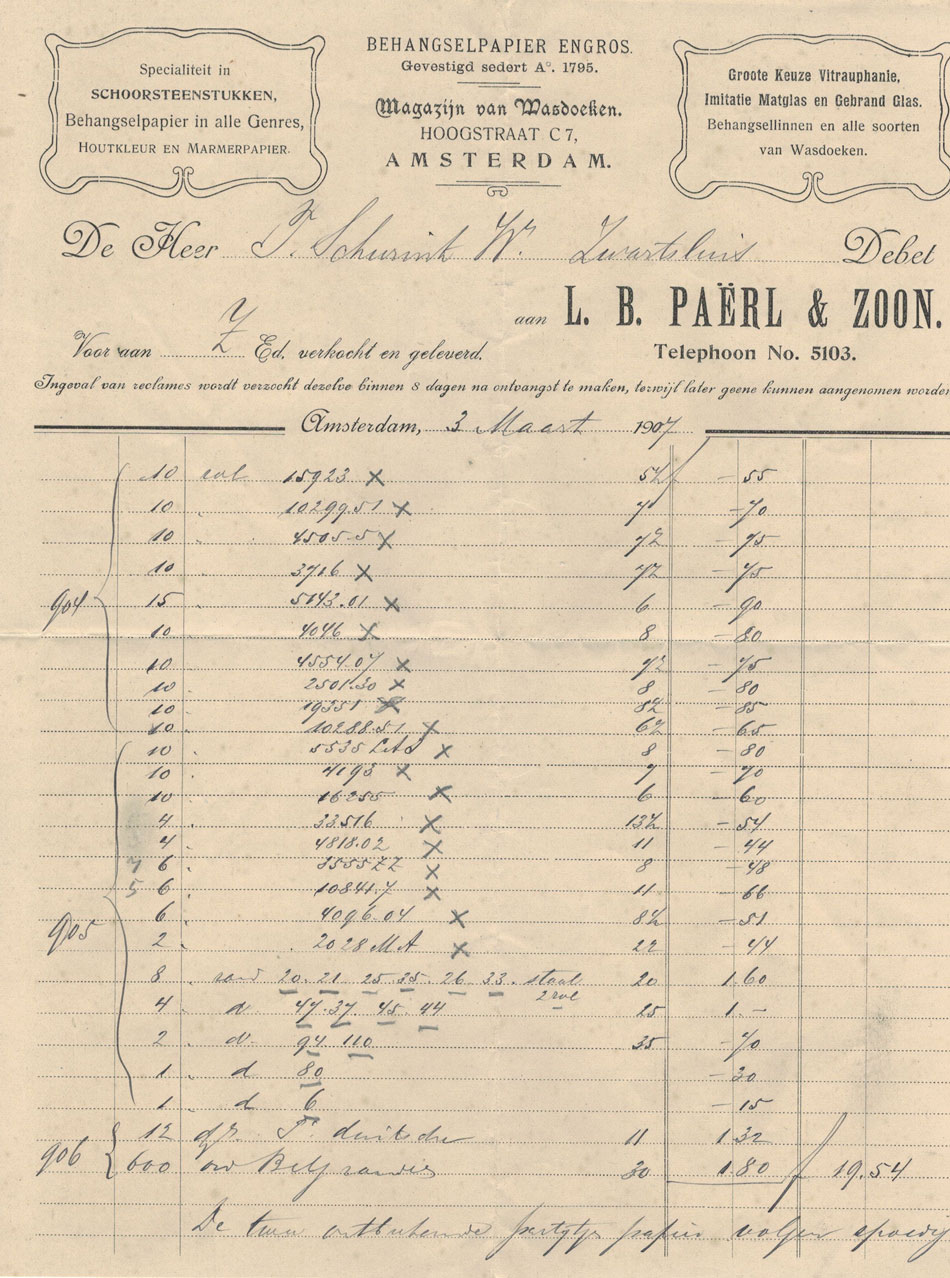 Specialiteit in
SCHOORSTEENSTUKKEN,
Behangselpapier in alle Genres,
HOUTKLEUR EN MARMERPAPIER.
BEHANGSELPAPIER ENGROS.
Gevestigd sedert A°. 1795.
Magazijn van Wasdoeken.
HOOGSTRAAT C 7,
AMSTERDAM.
Groote Keuze Vitrauphanie,
Imitatie Matglas en Gebrand Glas.
Behangsellinnen en alle soorten
van Wasdoeken.
De Heer F. Schurink Wz. Zwartsluis Debet
aan L. B. PAËRL & ZOON.
Voor aan Z Ed. verkocht en geleverd.
Telephoon No. 5103.
Ingeval van reclames wordt verzocht dezelve binnen 8 dagen na ontvangst te maken, terwijl later geene kunnen aangenomen worden
Amsterdam, 3 Maart 1907
10 rol 15923 x 5½ - 55
10 " 10299.51 x 7 - 70
10 " 4505-5 x 7½ - 75
10 " 3716 x 7½ - 75
904 15 " 5143.01 x 6 - 90
10 " 4046 x 8 - 80
10 " 4554.07 x 7½ - 75
10 " 2501.30 x 8 - 80
10 " 19351 x 8½ - 85
10 " 10288.51 x 6½ - 65
10 " 5535 x 8 - 80
10 " 4193 x 7 - 70
10 " 16255 x 6 - 60
4 " 33516 x 13½ - 54
4 " 4818.02 x 11 - 44
7 6 " 3555 ZZ x 8 - 48
5 6 " 10841.7 x 11 - 66
905 6 " 4096.04 x 8½ - 51
2 " 2028 MA x 22 - 44
8 " rand 20. 21 25 35. 26 33. staal 20 1.60
2 rol
4 d 47.37. 45. 44 25 1.-
2 " d 94 110 35 - 70
1 " d 80 - 30
1 " d 6 - 15
906 12 11 1.32
600 30 1.80 19.54
De papier volgen spoedig